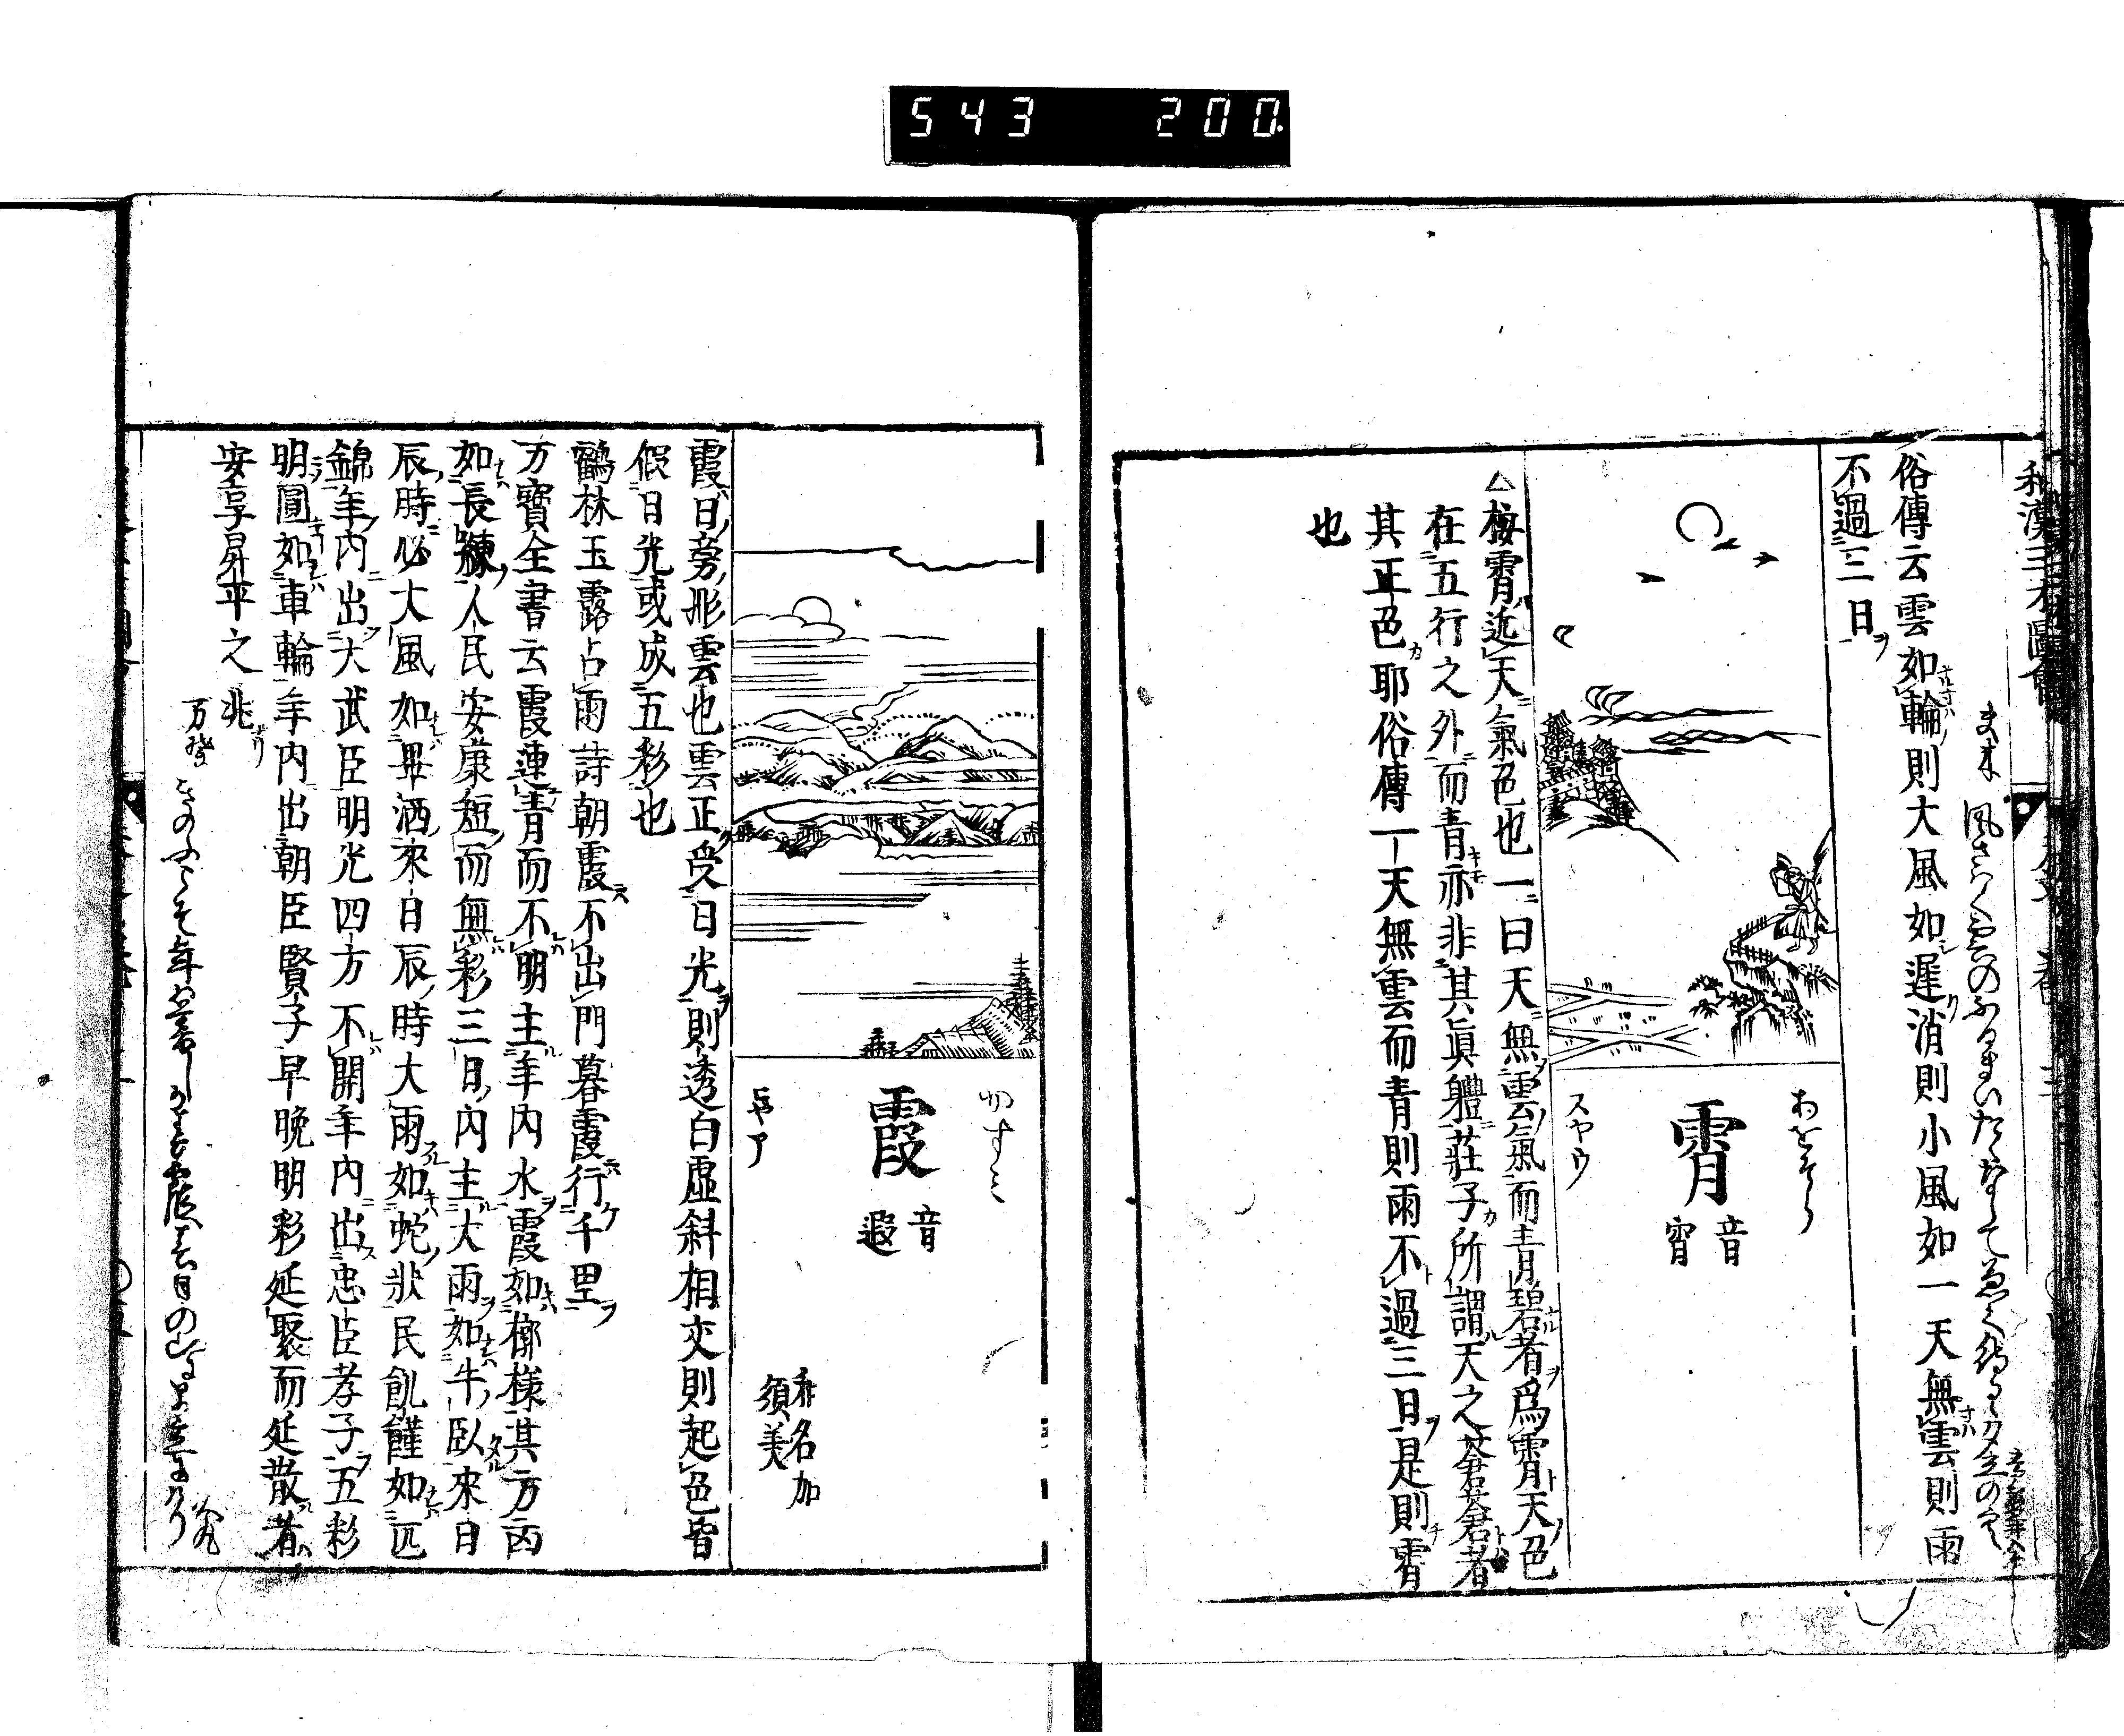 543 200
和漢三才圖會
俗傳云雲如輪則大風如遅消則小風如一天無雲則雨
不過三日
あをぞら
霄 音宵
スヤウ
△按霄近天氣色也一曰天無雲氣而青碧者爲霄天色
在五行之外而青亦非其眞軆莊子所謂天之蒼蒼者
其正色耶俗傳一天無雲而青則雨不過三日是則霄
也
かすミ
霞 音遐
和名加
須美
霞日旁彤雲也雲正受日光則透白虛斜相交則起色皆
假日光或成五彩也
鶴林玉露占雨詩朝霞不出門暮霞行千里
万寶全書云霞連青而不明主年内水霞如椰樣其方凶
如長練人民安康短而無彩三日内主大雨如牛臥來日
辰時必大風如畢洒來日辰時大雨如蛇狀民飢饉如匹
錦年内出大武臣明光四方不開年内出忠臣孝子五彩
明圓如車輪年内出朝臣賢子早晚明彩延聚而延散者
安享昇平之兆